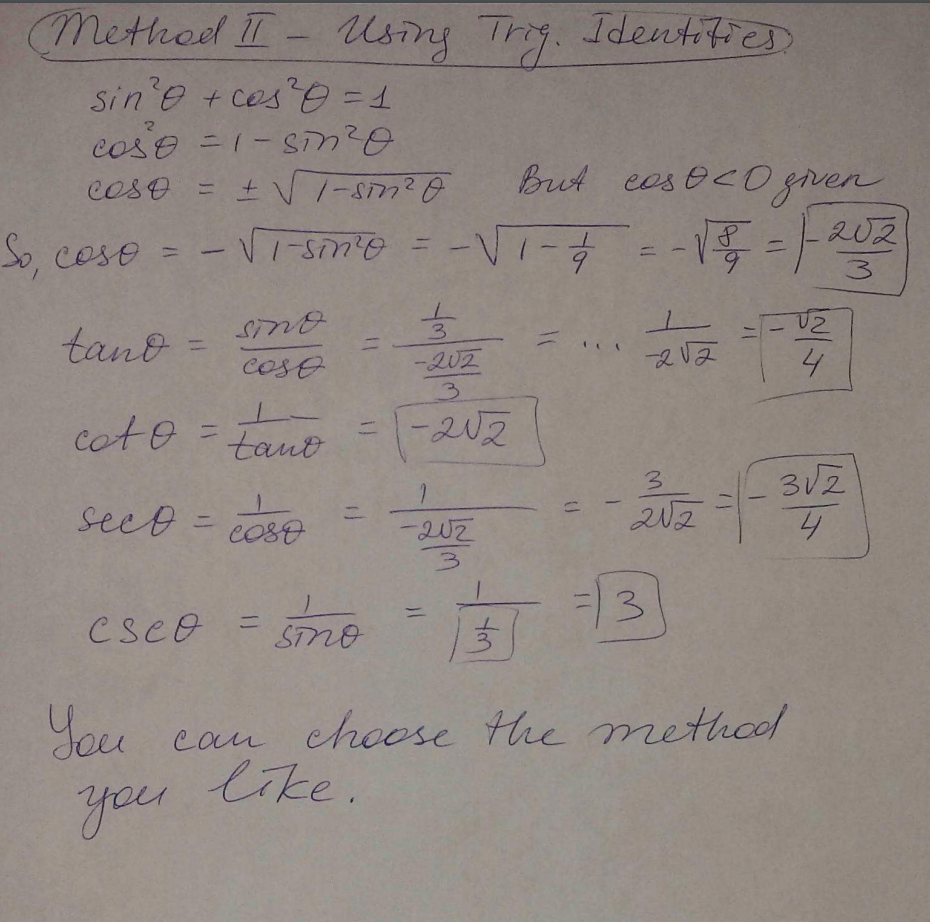 Method II - Using Trig. Identities
sin²θ + cos²θ = 1
cos²θ = 1 - sin²θ
cosθ = ± √(1-sin²θ) But cosθ<0 given
So, cosθ = - √(1-sin²θ) = -√(1 - 1/9) = -√(8/9) = -2√2/3
tanθ = sinθ/cosθ = (1/3)/(-2√2/3) = ... 1/-2√2 = -√2/4
cotθ = 1/tanθ = -2√2
secθ = 1/cosθ = 1/(-2√2/3) = - 3/2√2 = - 3√2/4
cscθ = 1/sinθ = 1/(1/3) = 3
You can choose the method
you like.